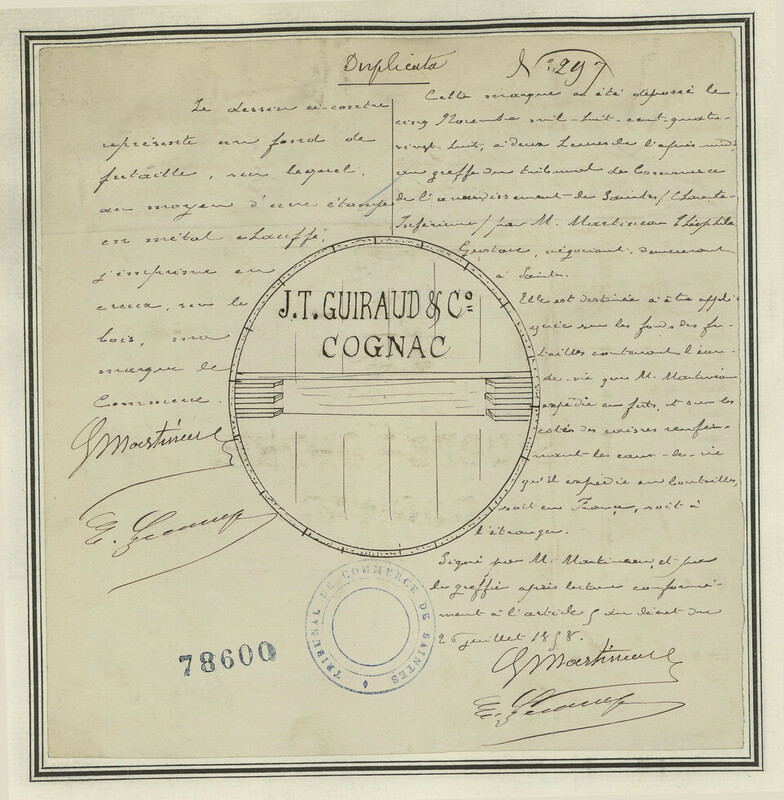 Duplicata
N° 297
Le dessin ci-contre
représente un fond de
futaille, sur lequel,
au moyen d'une étampe
en métal chauffé,
j'imprime en
creux, sur le
bois, ma
marque de
Commerce.
G Martineau
Cette marque a été déposée le
cinq Novembre mil-huit-cent-quatre-
vingt-huit, à deux heures de l'après-midi,
au greffe du tribunal de Commerce
de l'arrondissement de Saintes (Charente-
Inférieure) par M. Martineau Théophile
Gustave, négociant, demeurant
à Saintes.
Elle est destinée à être appli-
quée sur les fonds des fu-
tailles contenant l'eau-
de-vie que M. Martineau
expédie en fûts, et sur les
côtés des caisses renfer-
mant les eaux-de-vie
qu'il expédie en bouteilles,
soit en France, soit à
l'étranger.
Signé par M. Martineau, et par
le greffier après lecture conformé-
ment à l'article 5 du décret du
26 juillet 1858.
G Martineau
J.T. GUIRAUD & Co
COGNAC
TRIBUNAL DE COMMERCE DE SAINTES
78600